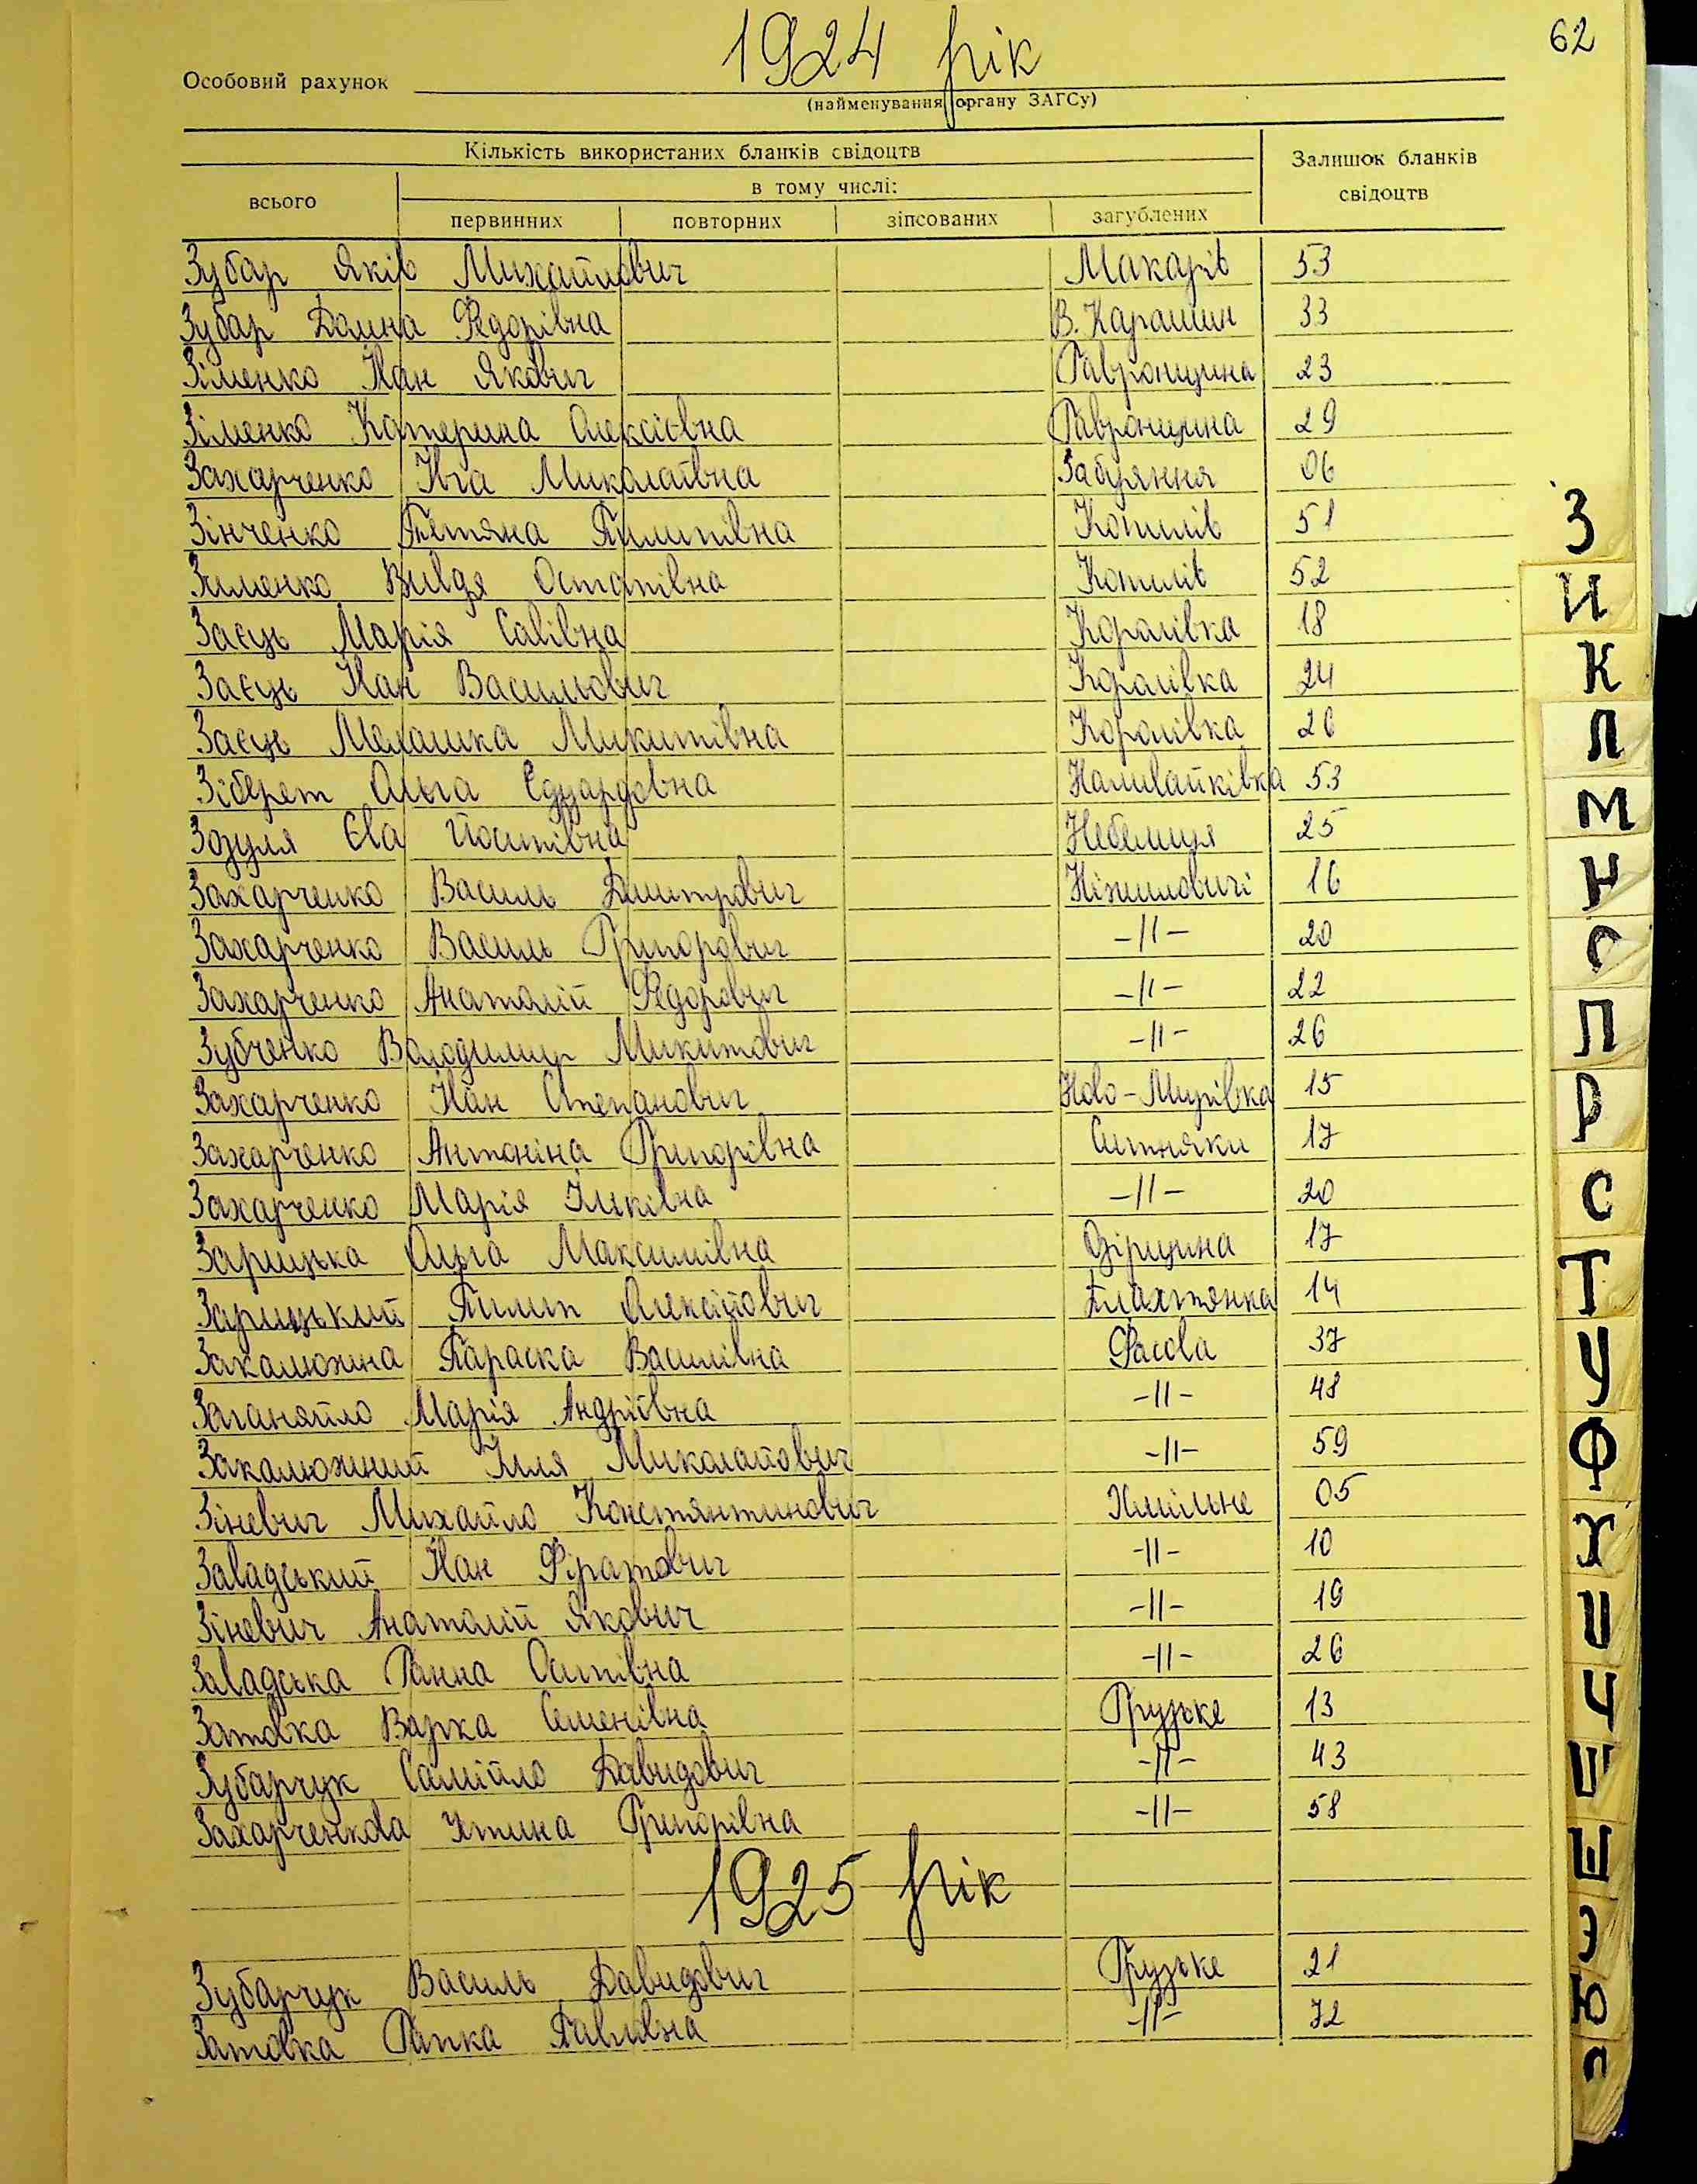 62
1924 рік
Особовий рахунок
(найменування органу ЗАГСу)
Кількість використаних бланків свідоцтв
Залишок бланків свідоцтв
всього
в тому числі:
первинних повторних зіпсованих загублених
Зубар Яків Михайлович Макарів 53
Зубар Домна Федорівна В. Карашин 33
Зіменко Іван Якович Гавронщина 23
Зіменко Катерина Олексіївна Гавронщина 29
Захарченко Івга Миколаївна Забуяння 06
Зінченко Тетяна Пилипівна Копилів 51
Зименко Вивдя Остапівна Копилів 52
Заєць Марія Савівна Королівка 18
Заєць Іван Васильович Королівка 24
Заєць Мелашка Микитівна Королівка 26
Зіберт Ольга Едуардовна Наливайківка 53
Зозуля Єва Йосипівна Небелиця 25
Захарченко Василь Дмитрович Ніжиловичі 16
Захарченко Василь Григорович -||- 20
Захарченко Анатолій Федорович -||- 22
Зубченко Володимир Микитович -||- 26
Захарченко Іван Степанович Ново-Мирівка 15
Захарченко Антоніна Григорівна Ситняки 17
Захарченко Марія Ільківна -||- 20
Зарицька Ольга Максимівна Озірщина 17
Зарицький Пилип Олексійович Плахтянка 14
Закалюжна Параска Василівна Фасова 37
Заганяйло Марія Андріївна -||- 48
Закалюжний Ілля Миколайович -||- 59
Зіневич Михайло Константинович Хмільне 05
Завадський Іван Фіратович -||- 10
Зіневич Анатолій Якович -||- 19
Завадська Ганна Осипівна -||- 26
Затовка Варка Семенівна Грузьке 13
Зубарчук Самійло Давидович -||- 43
Захарченкова Устина Григорівна -||- 58
1925 рік
Зубарчук Василь Давидович Грузьке 21
Затовка Гапка Павлівна -||- 72
З
И
К
Л
М
Н
О
П
Р
С
Т
У
Ф
Х
Ц
Ч
Ш
Щ
Э
Ю
Я